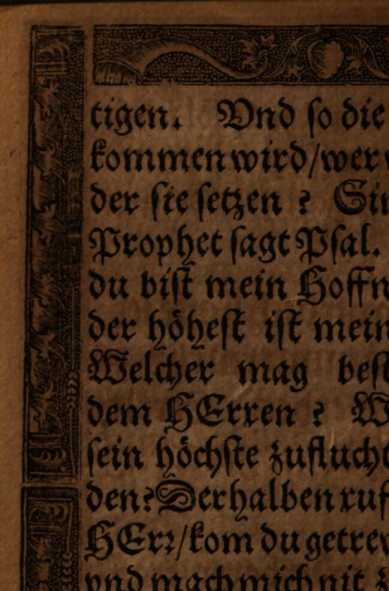 tigen. Vnd so die
kommen wird/wer
der sie setzen ? Sin
Prophet sagt Psal.
du bist mein Hoffn
der höhest ist mein
Welcher mag best
dem HErren ? W
sein höchste zuflucht
den? Derhalben ruf
HErr/kom du getrew
vnd mach mich nit z